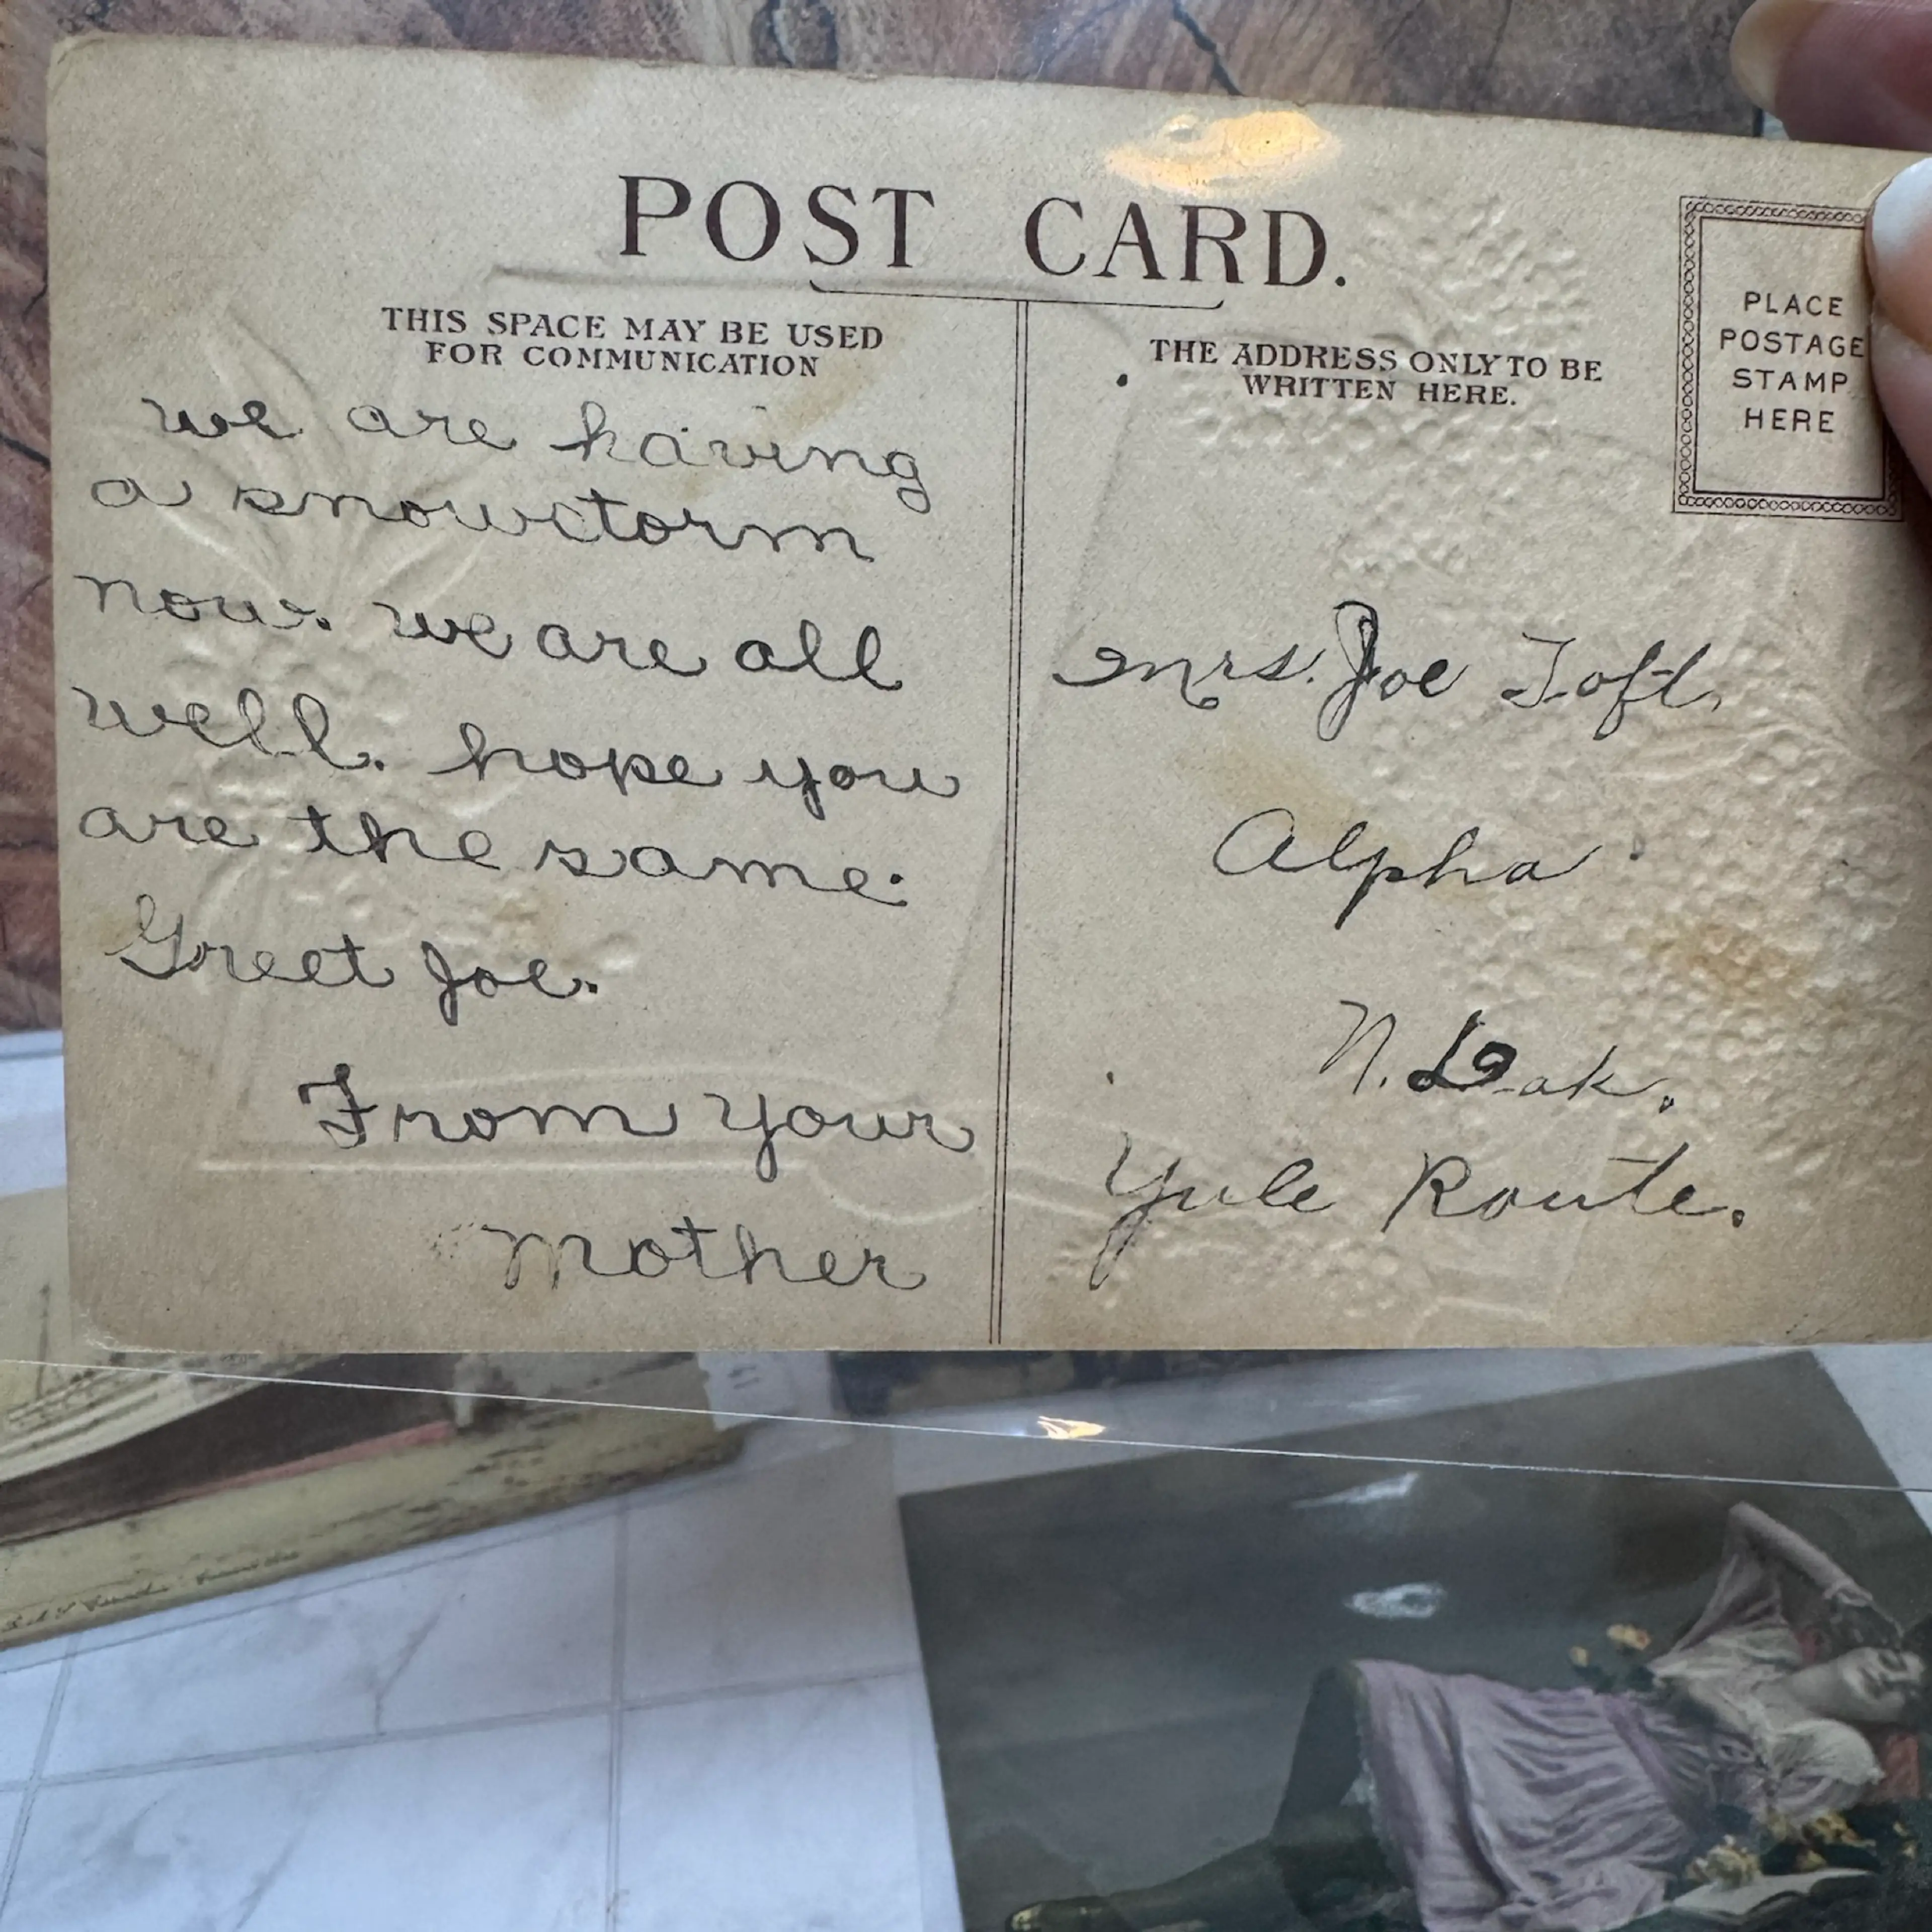 POST CARD.
THIS SPACE MAY BE USED
FOR COMMUNICATION
we are having
a snowstorm
now. we are all
well. hope you
are the same.
Greet Joe.
From your
Mother
THE ADDRESS ONLY TO BE
WRITTEN HERE.
PLACE
POSTAGE
STAMP
HERE
Mrs. Joe Toft.
Alpha
N. Dak.
Yule Route.